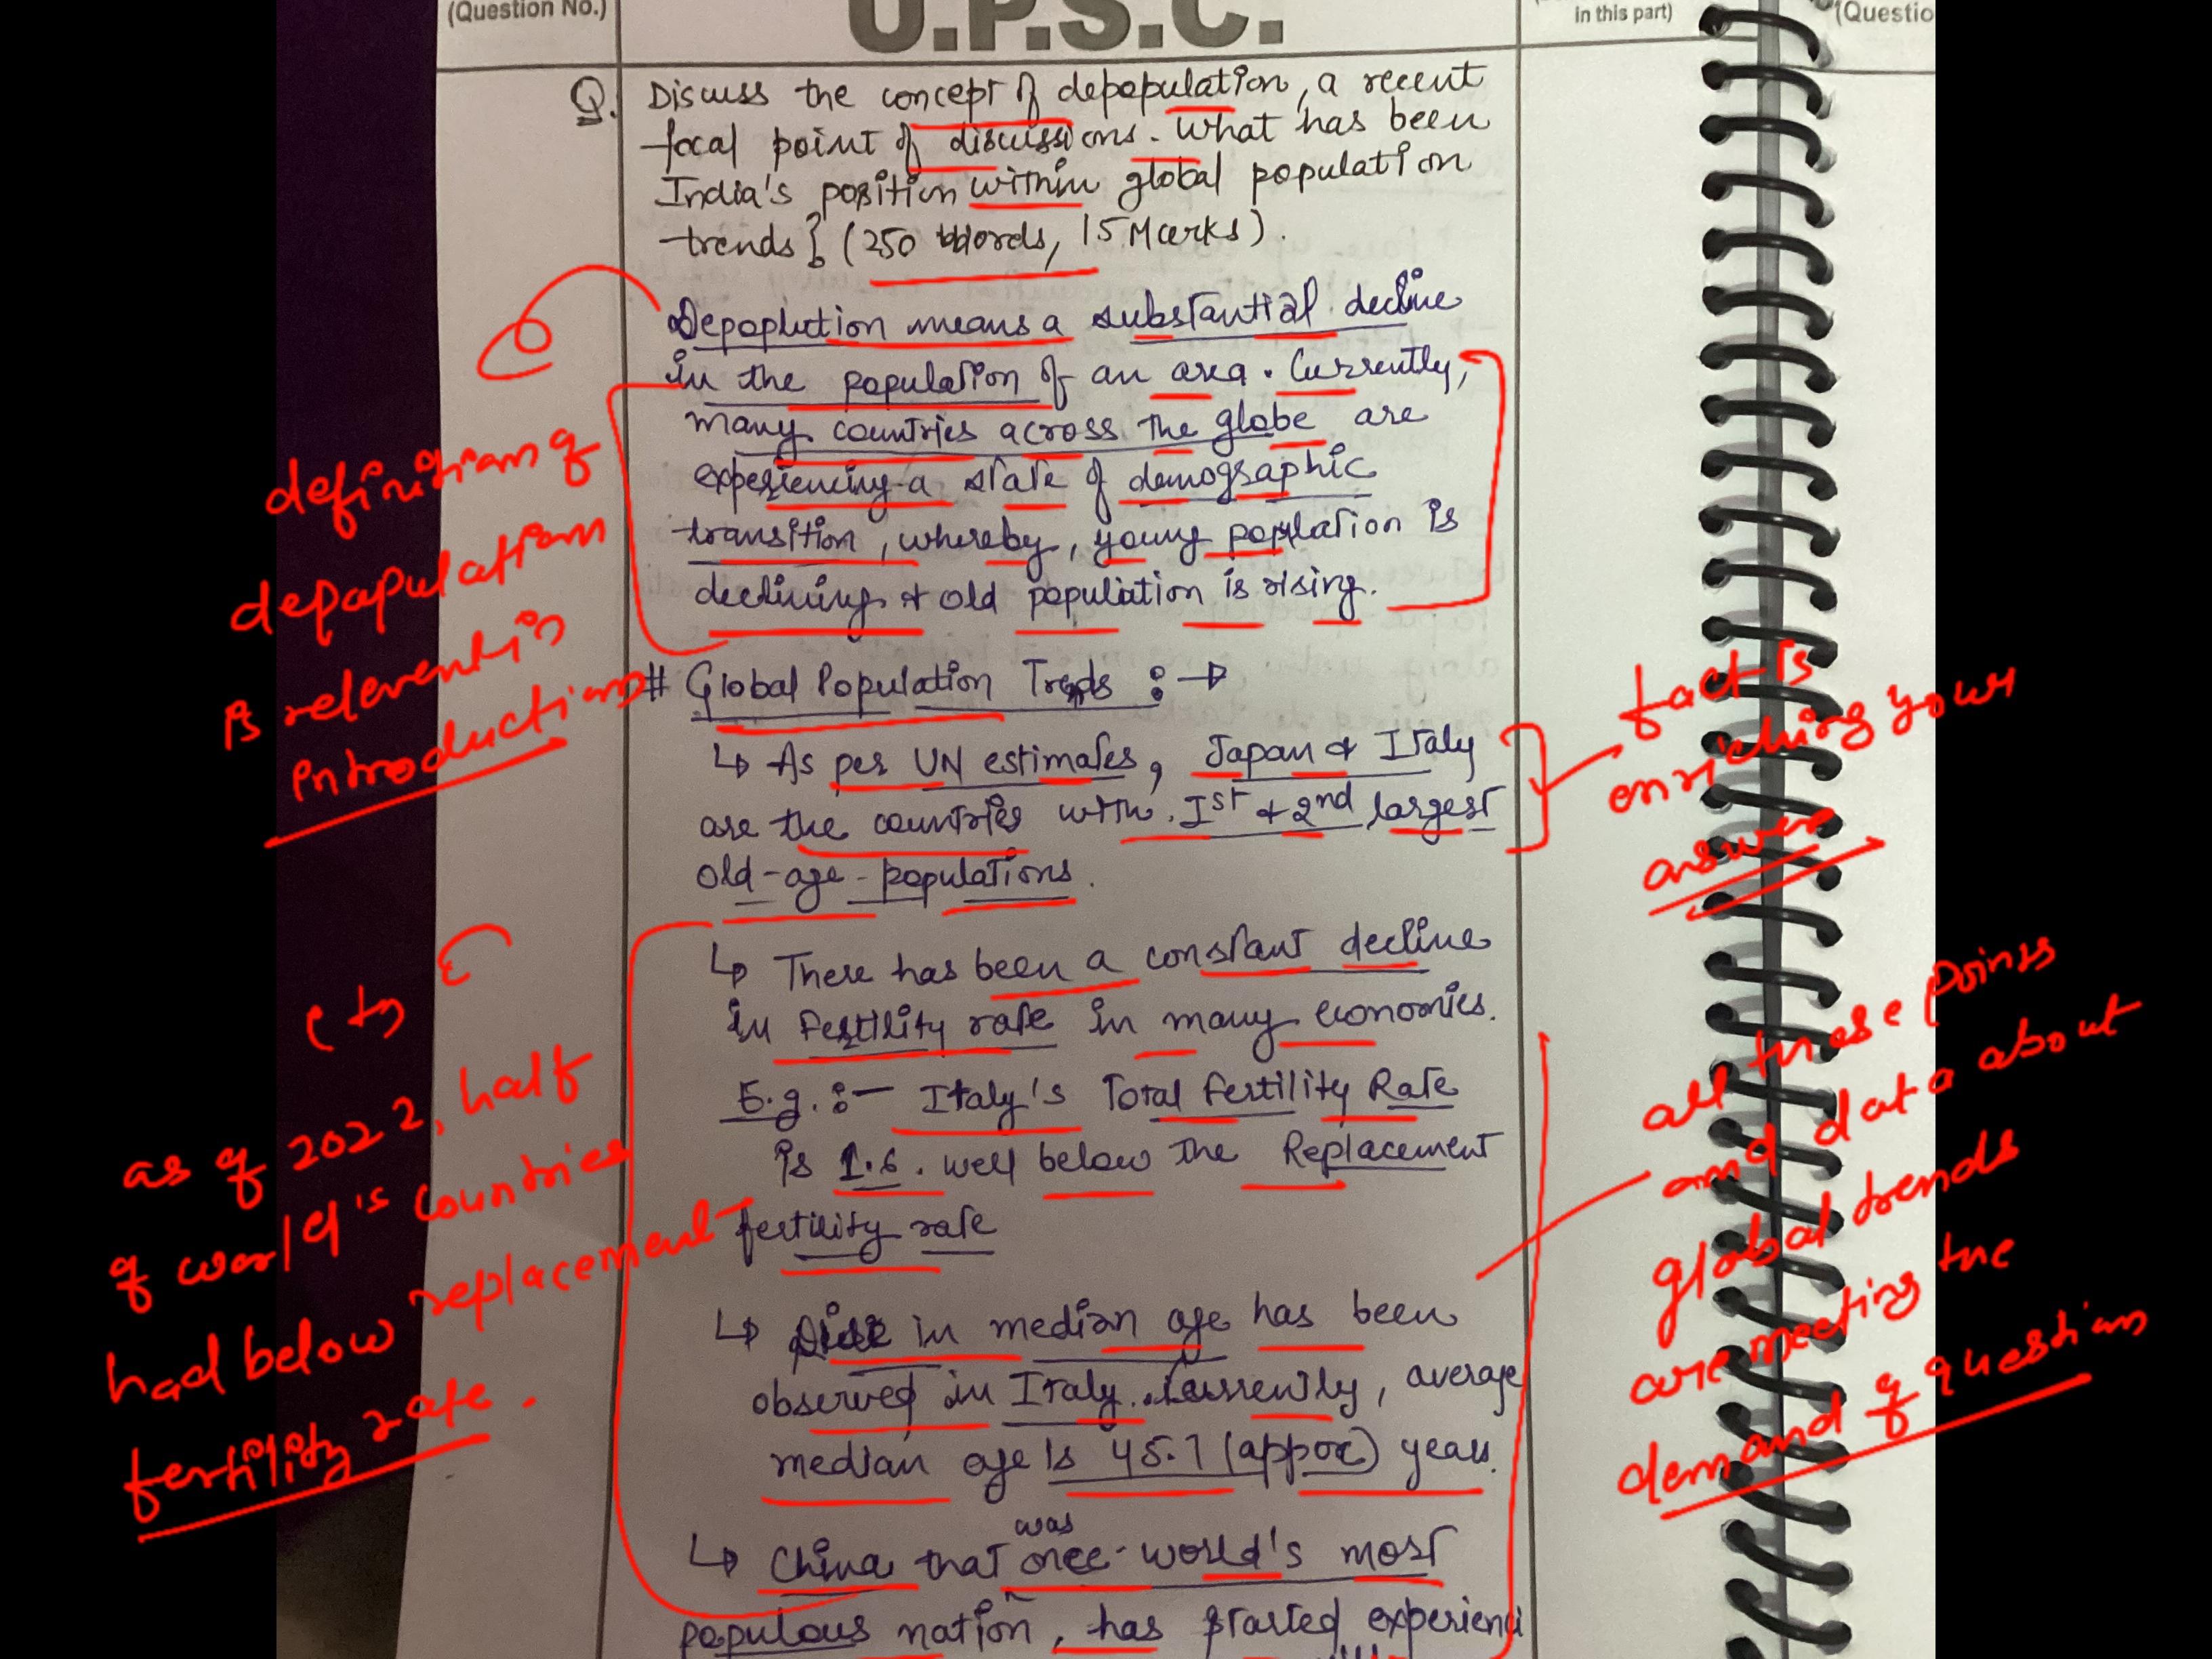 (Question No.)
U.P.S.C.
in this part)
(Questio
Q. Discuss the concept of depopulation, a recent
focal point of discussions. What has been
India's position within global population
trends? (250 Words, 15 Marks).
Depoplution means a substantial decline
in the population of an area. Currently,
many countries across the globe are
experiencing a state of demographic
transition, whereby, young population is
declining & old population is rising.
definition of
depapulation
is relevent in
introduction
# Global Population Trends :→
↳ As per UN estimates, Japan & Italy
are the countries with Ist & 2nd largest
old-age-populations.
fact is
enriching your
answer
↳ There has been a constant decline
in Fertility rate in many economies.
E.g. :- Italy's Total Fertility Rate
is 1.6. well below the Replacement
fertility rate
↳ Rise in median age has been
observed in Italy. Currently, average
median age is 45.7 (appox) years.
↳ China that was once world's most
populous nation, has started experienci
as of 2022, half
of world's countries
had below replacement
fertility rate.
all these points
and data about
global trends
are meeting the
demand of question